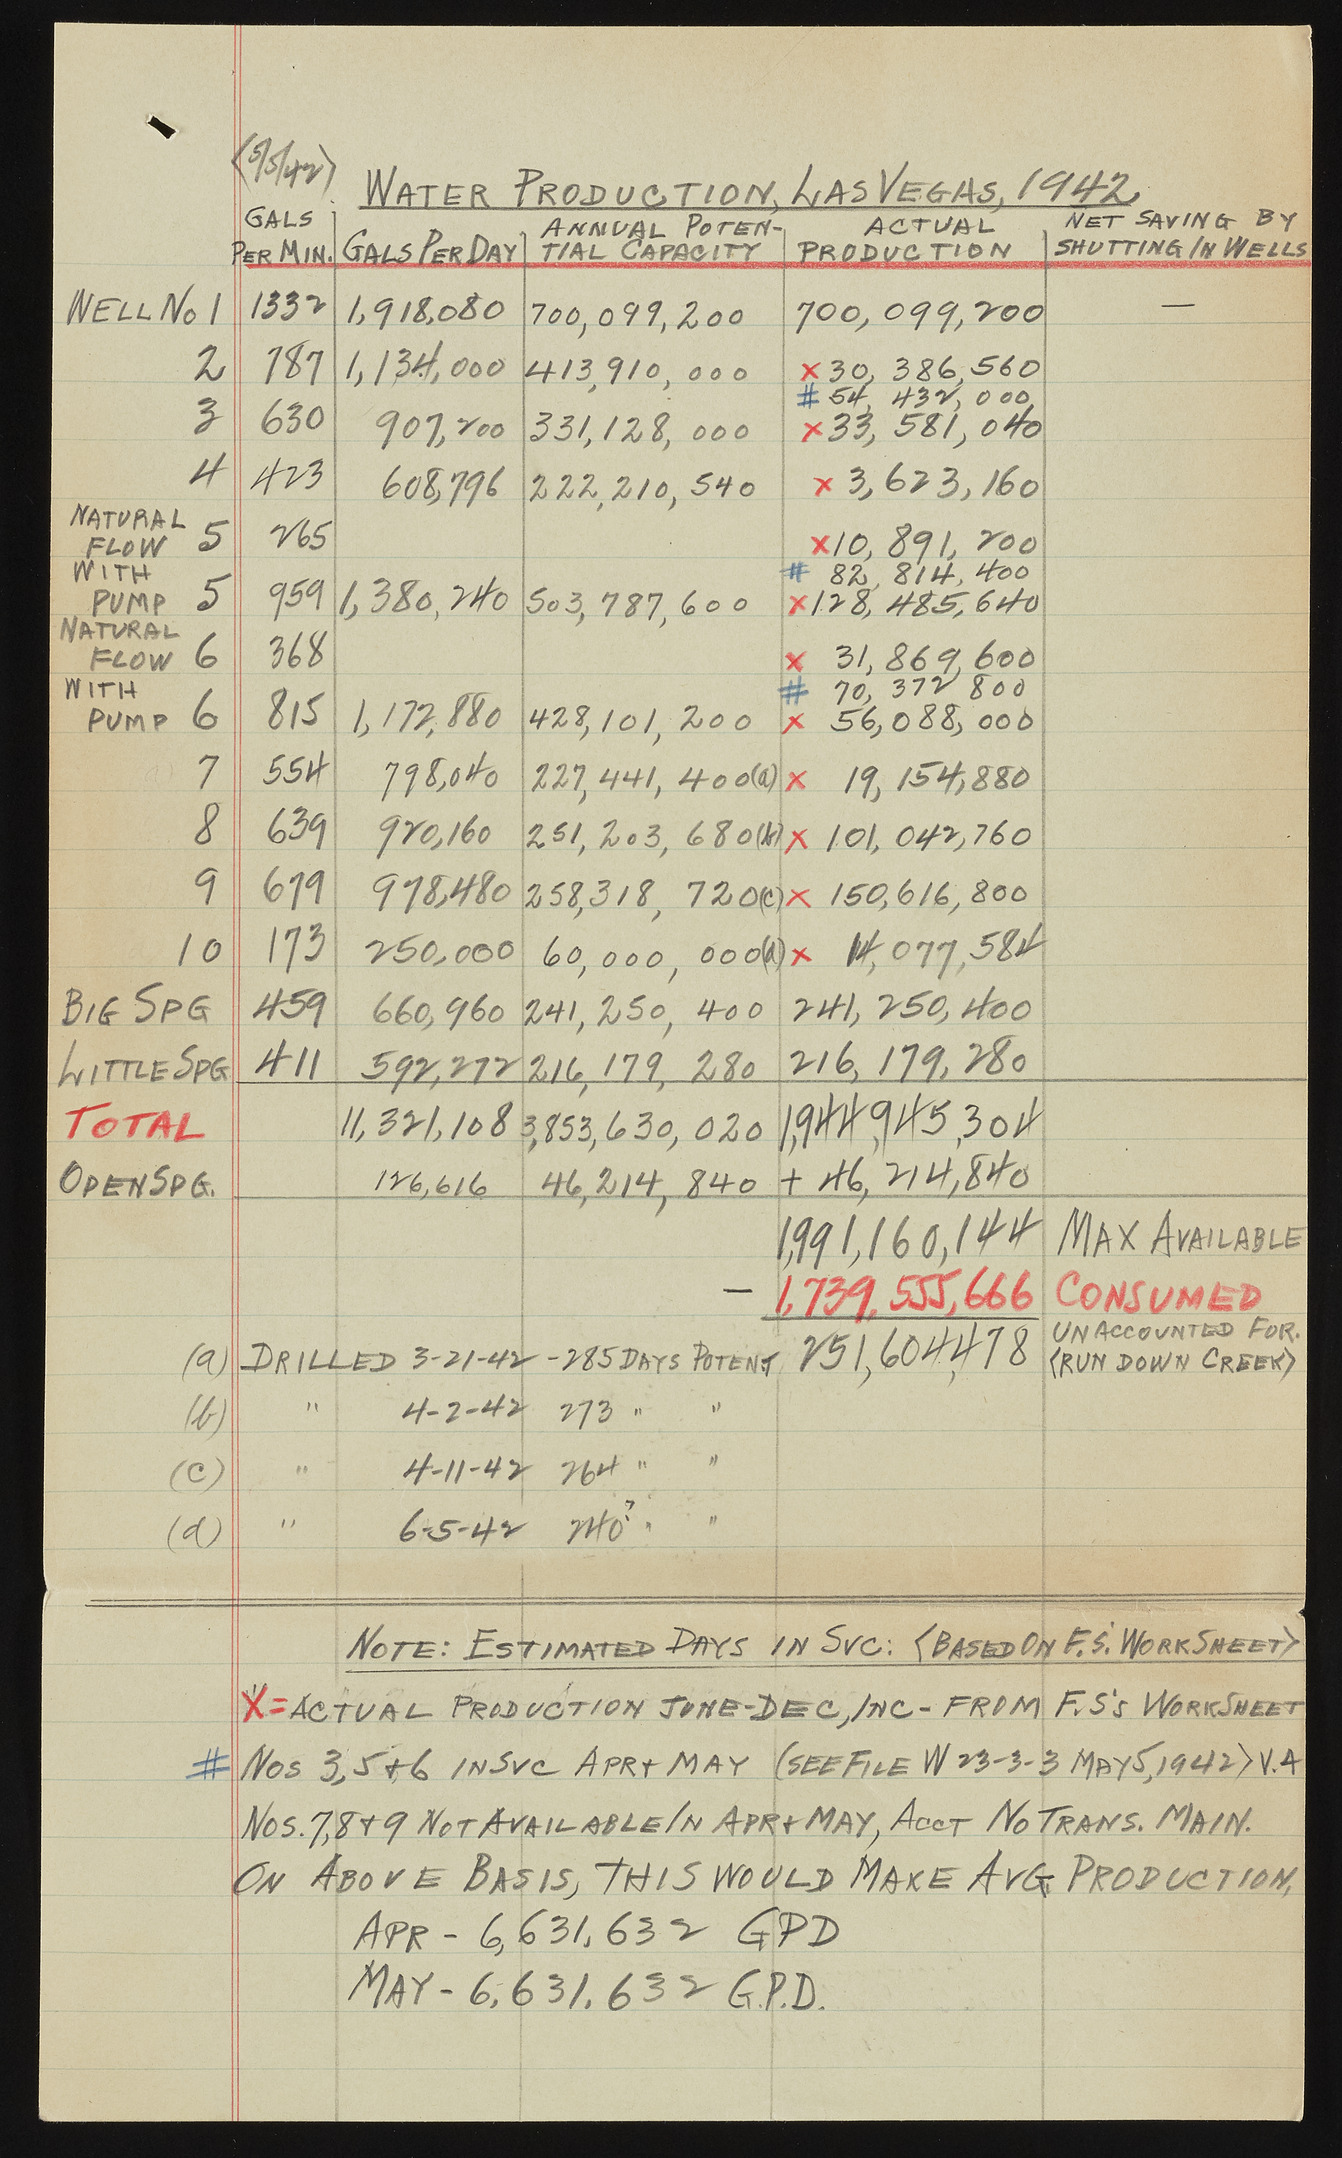 <5/5/42>
WATER PRODUCTION, LAS VEGAS, 1942
GALS PER MIN. | GALS PER DAY | ANNUAL POTEN-TIAL CAPACITY | ACTUAL PRODUCTION | NET SAVING BY SHUTTING IN WELLS
WELL NO 1 1332 1,918,080 700,099,200 700,099,200 —
2 787 1,134,000 413,910,000 x 30,386,560
# 54,432,000
3 630 907,200 331,128,000 x 33,581,040
4 423 608,796 222,210,540 x 3,623,160
NATURAL FLOW 5 265 x 10,891,200
# 82,814,400
WITH PUMP 5 959 1,380,240 503,787,600 x 128,485,640
NATURAL FLOW 6 368 x 31,869,600
# 70,372 800
WITH PUMP 6 815 1,172,880 428,101,200 x 56,088,000
7 554 798,040 227,441,400(a) x 19,154,880
8 639 920,160 251,203,680(b) x 101,042,760
9 679 978,480 258,318,720(c) x 150,616,800
10 173 250,000 60,000,000(d) x 14,077,584
BIG SPG 459 660,960 241,250,400 241,250,400
LITTLE SPG 411 592,272 216,179,280 216,179,280
TOTAL 11,321,108 3,853,630,020 1,944,945,304
OPEN SPG. 126,616 46,214,840 + 46,214,840
1,991,160,144 MAX AVAILABLE
— 1,739,555,666 CONSUMED
UNACCOUNTED FOR.
(a) DRILLED 3-21-42 - 285 DAYS POTENT 251,604,478 <RUN DOWN CREEK>
(b) " 4-2-42 273 " "
(c) " 4-11-42 264 " "
(d) " 6-5-42 240? " "
NOTE: ESTIMATED DAYS IN SVC: <BASED ON F.S.' WORKSHEET>
X = ACTUAL PRODUCTION JUNE-DEC, INC - FROM F.S's WORKSHEET
# NOS 3,5+6 IN SVC APR + MAY (SEE FILE W 23-3-3 MAY 5, 1942> V.A
NOS. 7,8+9 NOT AVAILABLE IN APR + MAY, ACCT NO TRANS. MAIN.
ON ABOVE BASIS, THIS WOULD MAKE AVG PRODUCTION,
APR - 6,631,632 GPD
MAY - 6,631,632 G.P.D.